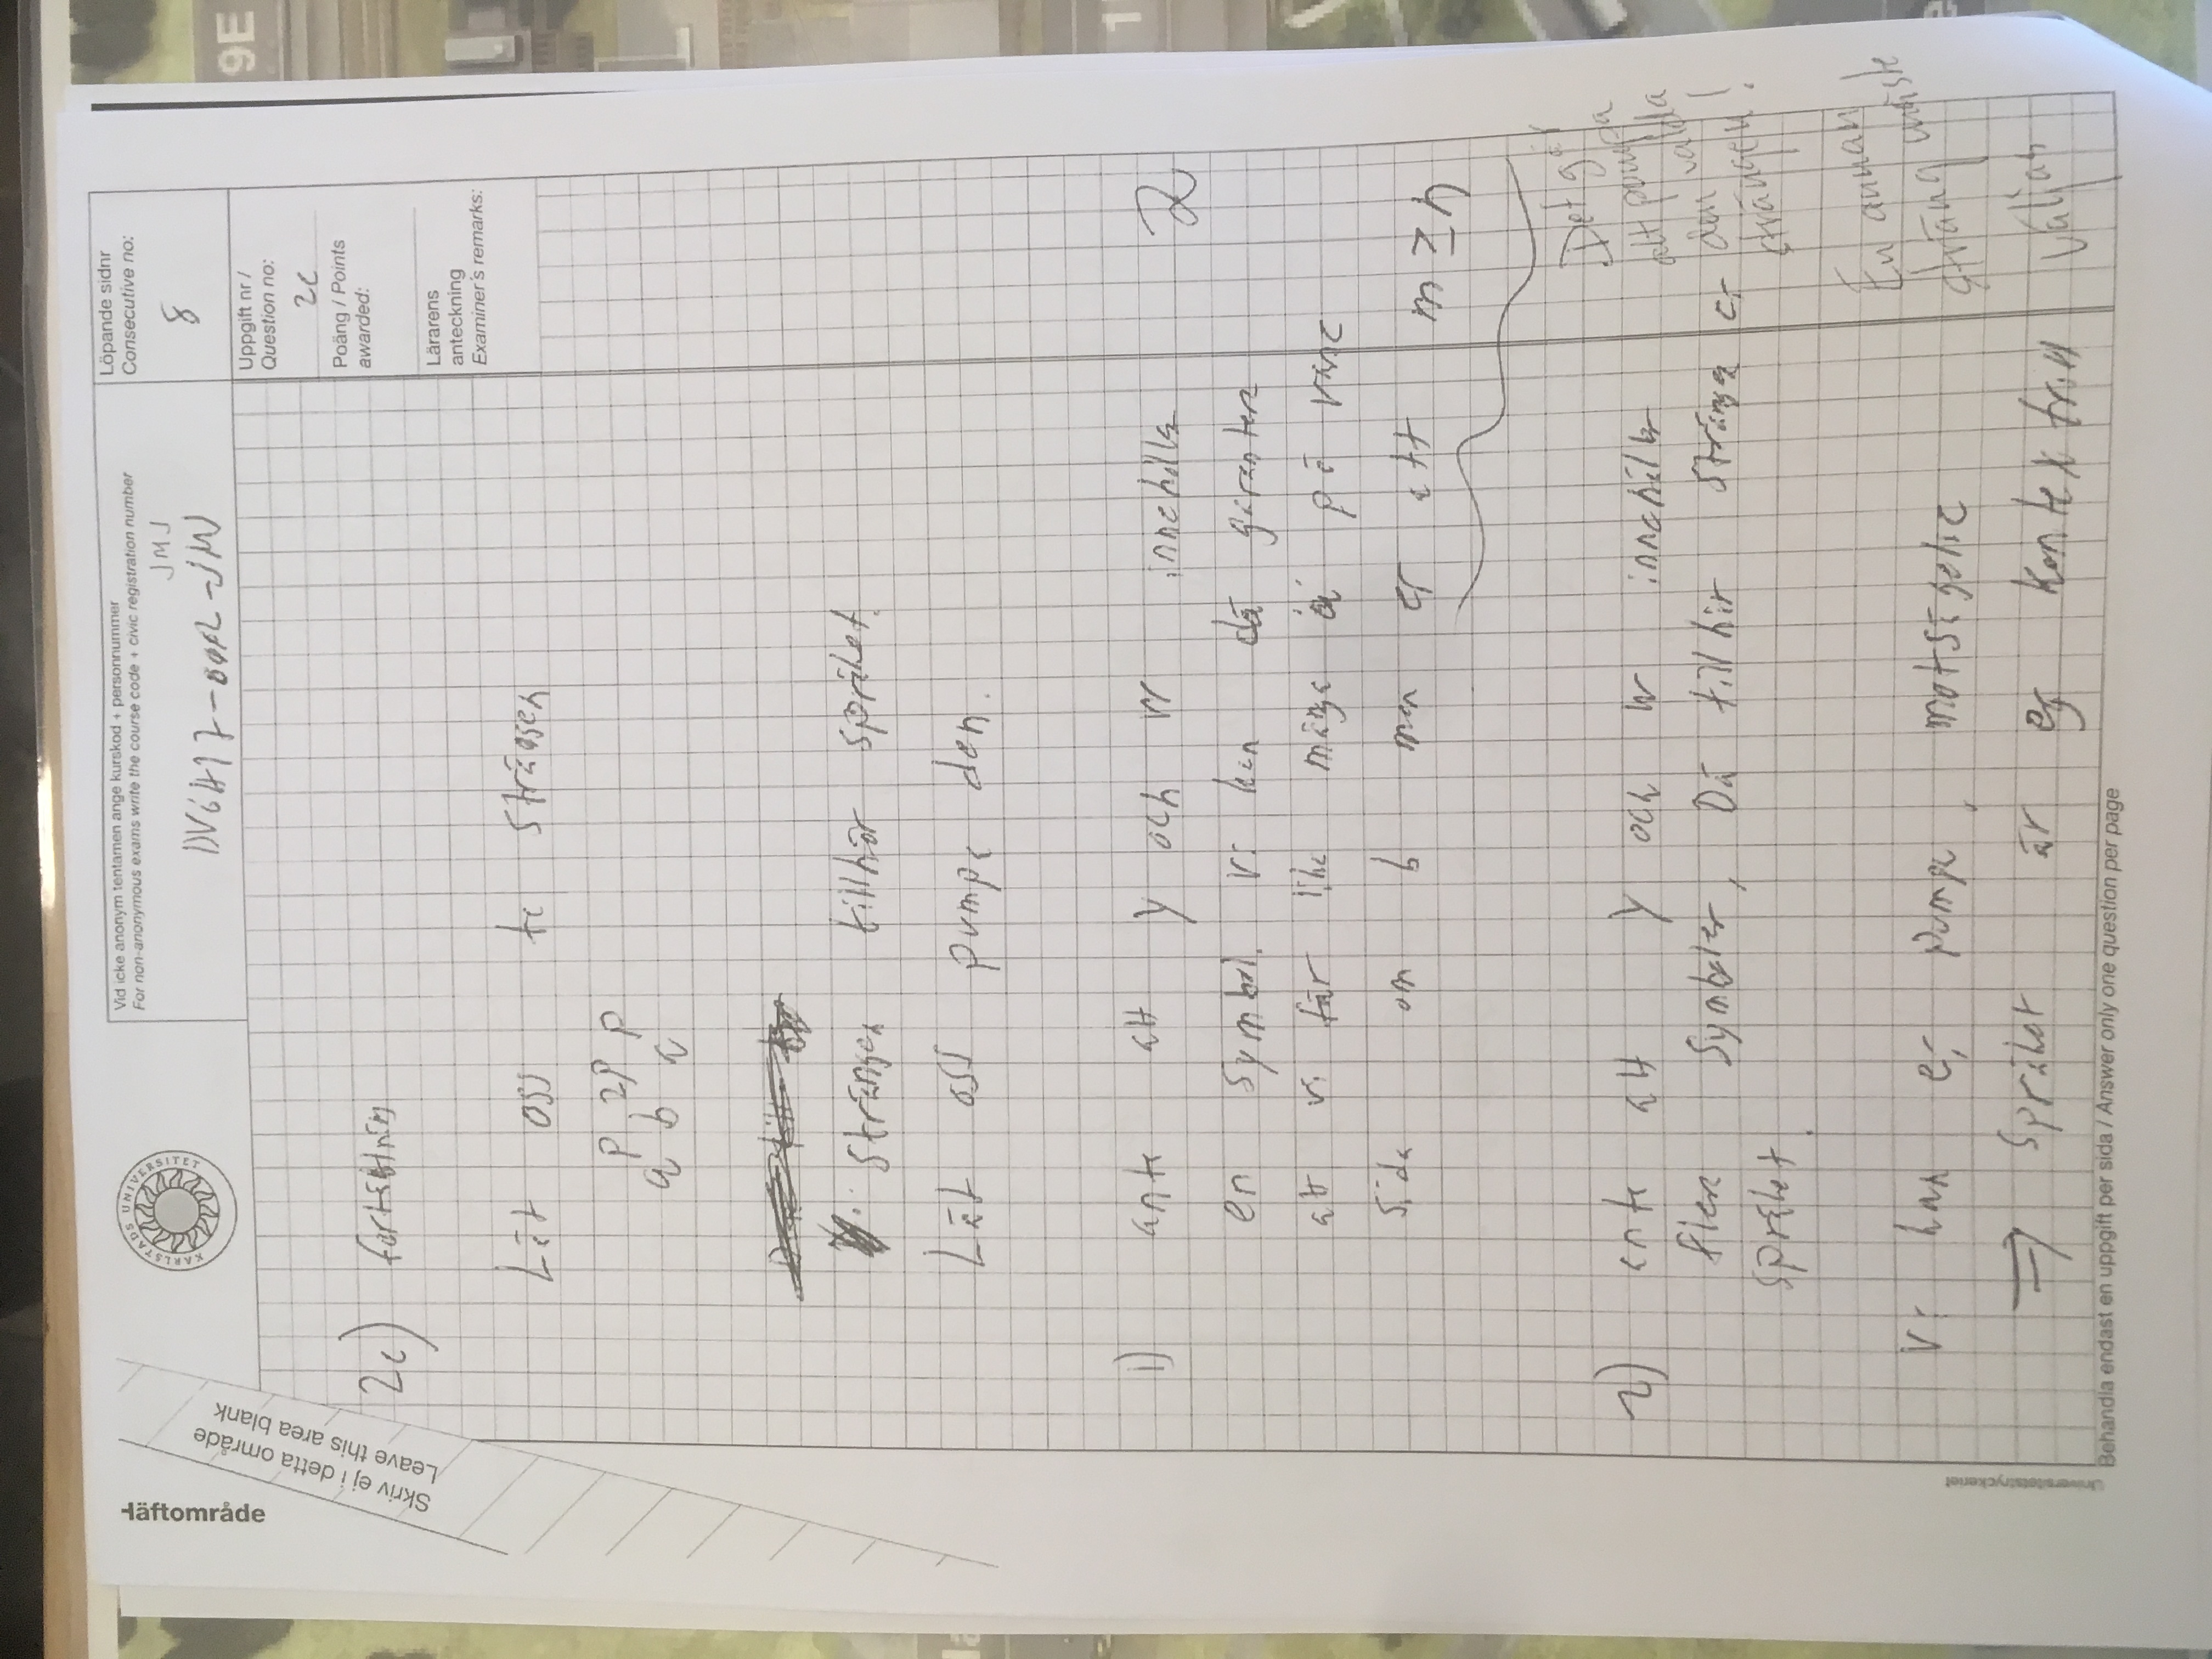 Häftområde
Skriv ej i detta område
Leave this area blank
KARLSTADS UNIVERSITET
Vid icke anonym tentamen ange kurskod + personnummer
For non-anonymous exams write the course code + civic registration number
JMJ
Löpande sidnr
Consecutive no:
8
Uppgift nr /
Question no:
2c
Poäng / Points
awarded:
Lärarens
anteckning
Examiner's remarks:
9E
2c) fortsättning
Låt oss ta strängen
p 2p p
a b a
strängen tillhör språket.
Låt oss pumpa den.
1) anta att y och w innehålla
2
en symbol. vi kan då garantera
att vi får lika många a på vare
sida om b men ej att m ≥ n
Det går
att pumpa
den valda
strängen!
2) anta att y och w innehåller
flera symboler, Då tillhör strängen ej
språket.
En annan
sträng måste
väljas
vi kan ej pumpa, motsägelse
⇒ språket är ej kontextfritt
Universitetstryckeriet
Behandla endast en uppgift per sida / Answer only one question per page
1